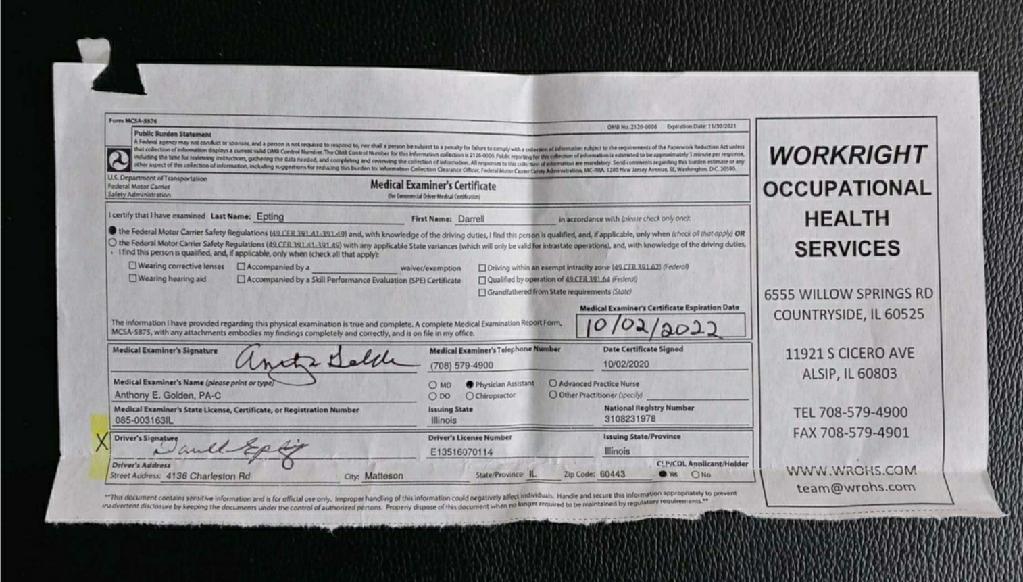 Form MCSA-5876
OMB No. 2126-0006 Expiration Date: 11/30/2021
Public Burden Statement
A Federal agency may not conduct or sponsor, and a person is not required to respond to, nor shall a person be subject to a penalty for failure to comply with a collection of information subject to the requirements of the Paperwork Reduction Act unless
that collection of information displays a current valid OMB Control Number. The OMB Control Number for this information collection is 2126-0006. Public reporting for this collection of information is estimated to be approximately 1 minute per response,
including the time for reviewing instructions, gathering the data needed, and completing and reviewing the collection of information. All responses to this collection of information are mandatory. Send comments regarding this burden estimate or any
other aspect of this collection of information, including suggestions for reducing this burden to: Information Collection Clearance Officer, Federal Motor Carrier Safety Administration, MC-RRA, 1200 New Jersey Avenue, SE, Washington, D.C. 20590.
U.S. Department of Transportation
Federal Motor Carrier
Safety Administration
Medical Examiner's Certificate
(for Commercial Driver Medical Certification)
I certify that I have examined Last Name: Epting First Name: Darrell in accordance with (please check only one):
the Federal Motor Carrier Safety Regulations (49 CFR 391.41-391.49) and, with knowledge of the driving duties, I find this person is qualified, and, if applicable, only when (check all that apply) OR
the Federal Motor Carrier Safety Regulations (49 CFR 391.41-391.49) with any applicable State variances (which will only be valid for intrastate operations), and, with knowledge of the driving duties,
I find this person is qualified, and, if applicable, only when (check all that apply):
Wearing corrective lenses Accompanied by a waiver/exemption Driving within an exempt intracity zone (49 CFR 391.62) (Federal)
Wearing hearing aid Accompanied by a Skill Performance Evaluation (SPE) Certificate Qualified by operation of 49 CFR 391.64 (Federal)
Grandfathered from State requirements (State)
Medical Examiner's Certificate Expiration Date
The information I have provided regarding this physical examination is true and complete. A complete Medical Examination Report Form,
MCSA-5875, with any attachments embodies my findings completely and correctly, and is on file in my office.
10/02/2022
Medical Examiner's Signature Medical Examiner's Telephone Number Date Certificate Signed
(708) 579-4900 10/02/2020
Medical Examiner's Name (please print or type) MD Physician Assistant Advanced Practice Nurse
Anthony E. Golden, PA-C DO Chiropractor Other Practitioner (specify)
Medical Examiner's State License, Certificate, or Registration Number Issuing State National Registry Number
085-003163IL Illinois 3108231978
X Driver's Signature Driver's License Number Issuing State/Province
Darrell Epting E13516070114 Illinois
Driver's Address CLP/CDL Applicant/Holder
Street Address: 4136 Charleston Rd City: Matteson State/Province: IL Zip Code: 60443 Yes No
**This document contains sensitive information and is for official use only. Improper handling of this information could negatively affect individuals. Handle and secure this information appropriately to prevent
inadvertent disclosure by keeping the documents under the control of authorized persons. Properly dispose of this document when no longer required to be maintained by regulatory requirements.**
WORKRIGHT
OCCUPATIONAL
HEALTH
SERVICES
6555 WILLOW SPRINGS RD
COUNTRYSIDE, IL 60525
11921 S CICERO AVE
ALSIP, IL 60803
TEL 708-579-4900
FAX 708-579-4901
WWW.WROHS.COM
team@wrohs.com